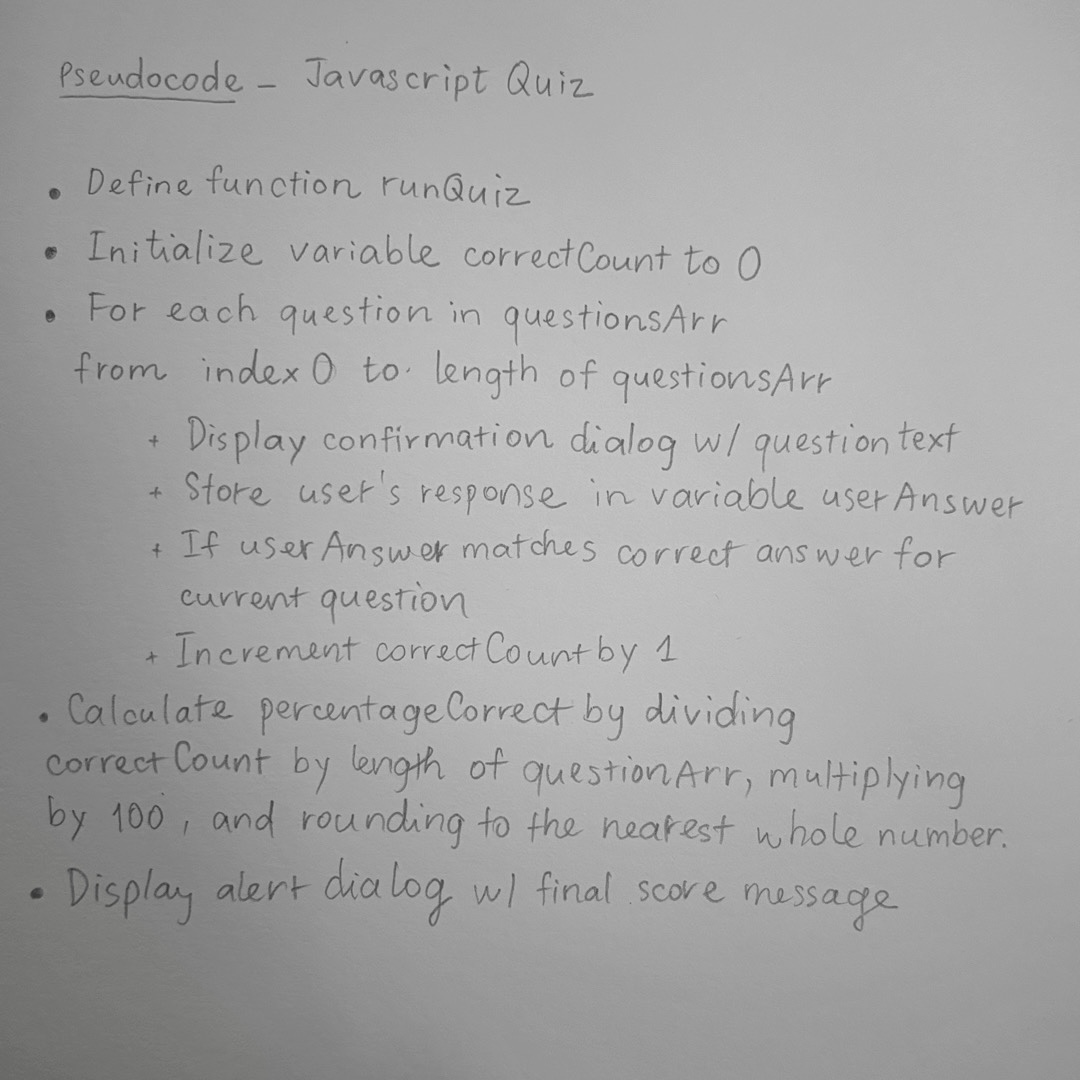 Pseudocode - Javascript Quiz
• Define function runQuiz
• Initialize variable correctCount to 0
• For each question in questionsArr
from index 0 to length of questionsArr
+ Display confirmation dialog w/ question text
+ Store user's response in variable userAnswer
+ If userAnswer matches correct answer for
current question
+ Increment correctCount by 1
• Calculate percentageCorrect by dividing
correctCount by length of questionArr, multiplying
by 100, and rounding to the nearest whole number.
• Display alert dialog w/ final score message